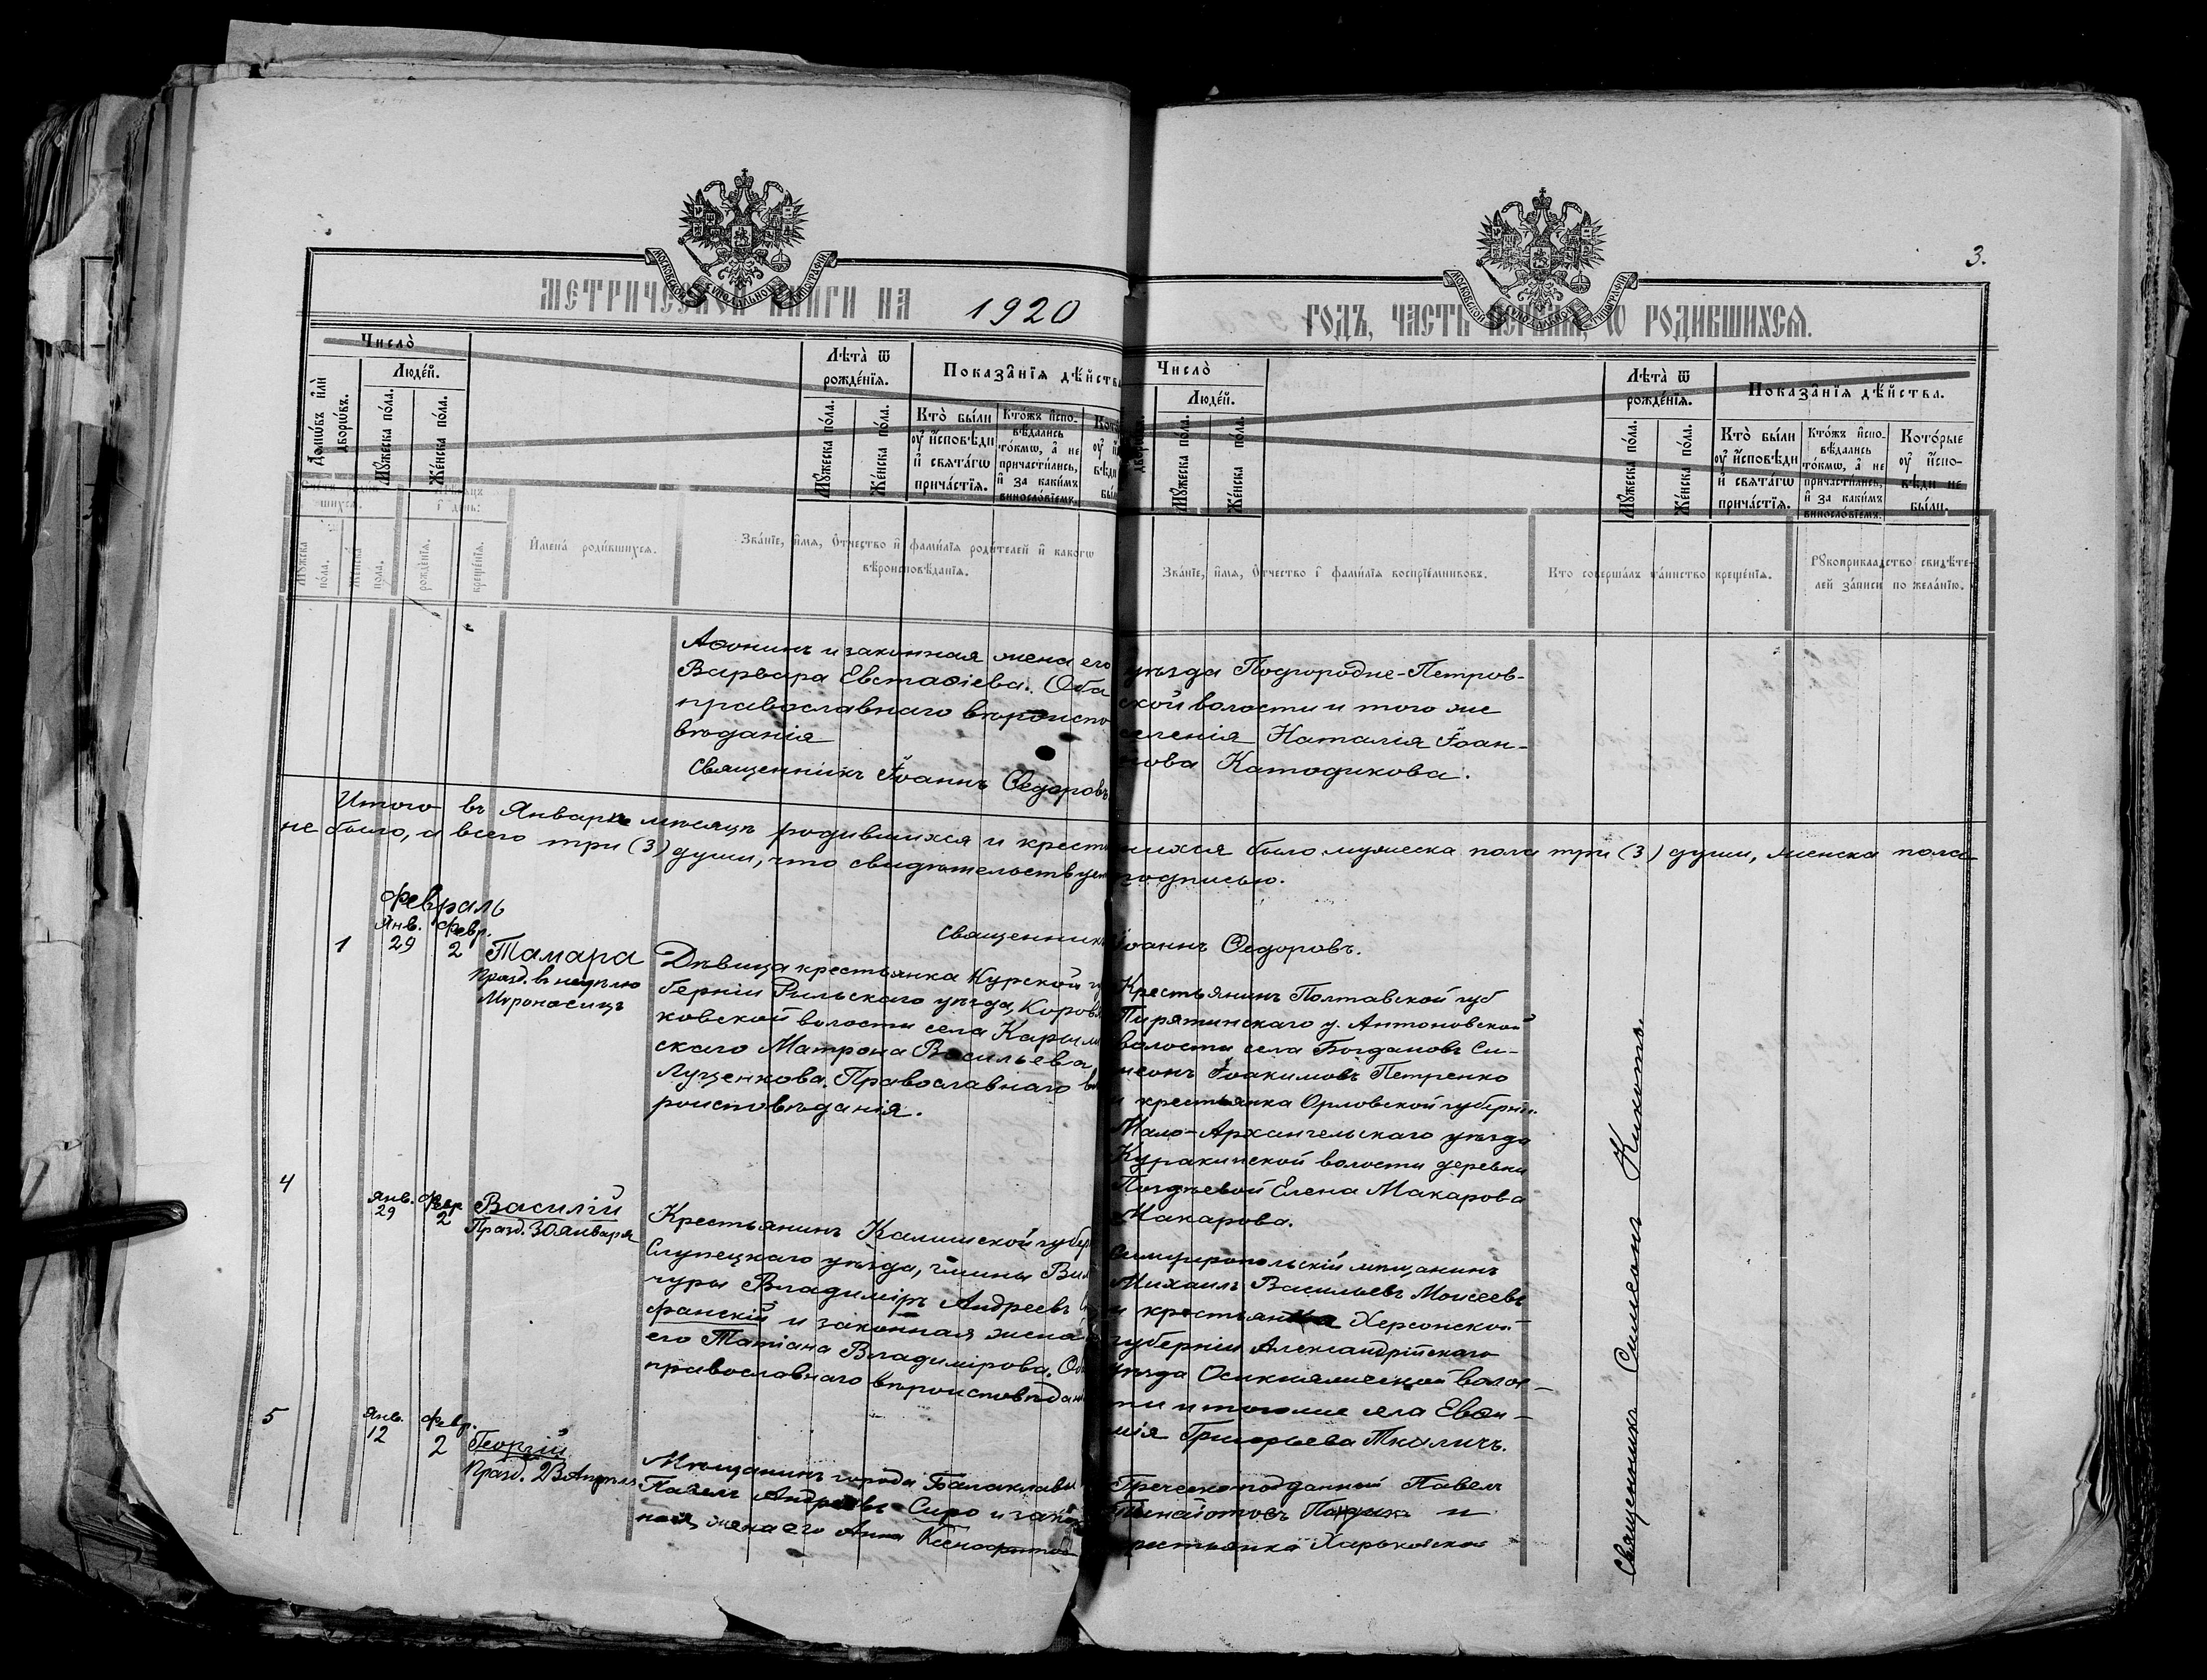 3.
МОСКОВСКОЙ СѴНОДАЛЬНОЙ ТИПОГРАФІИ
МОСКОВСКОЙ СѴНОДАЛЬНОЙ ТИПОГРАФІИ
МЕТРИЧЕСКОЙ КНИГИ НА 1920 ГОДЪ, ЧАСТЬ ПЕРВАЯ, Ѡ РОДИВШИХСЯ.
Число̀
Людéй.
Домѡ́въ и҆лѝ дворѡ́въ.
Мꙋ́жеска по́ла.
Же́нска по́ла.
Лѣта̀ ѿ рождéнїѧ.
Мꙋ́жеска по́ла.
Же́нска по́ла.
Показа̑нїѧ дѣ́йства
Кто̀ бы́ли
ᲂу҆ и҆́сповѣди
и҆ свѧта́гѡ
прича́стїѧ.
Кто́жъ и҆спо-
вѣ́дались
то́кмѡ, а҆ не
причасти́лись,
и҆ за каки́мъ
винослóвїемъ.
Число̀
Людéй.
дворѡ́въ.
Мꙋ́жеска по́ла.
Же́нска по́ла.
Лѣта̀ ѿ рождéнїѧ.
Мꙋ́жеска по́ла.
Же́нска по́ла.
Показа̑нїѧ дѣ́йства.
Кто̀ бы́ли
ᲂу҆ и҆́сповѣди
и҆ свѧта́гѡ
прича́стїѧ.
Кто́жъ и҆спо-
вѣ́дались
то́кмѡ, а҆ не
причасти́лись,
и҆ за каки́мъ
винослóвїемъ.
Кото́рые
ᲂу҆ и҆́спо-
вѣди не
бы́ли.
шихся.
і день:
Мꙋ́жеска по́ла.
Же́нска по́ла.
рождéнїѧ.
крещéнїѧ.
И҆мена̀ роди́вшихся.
Зва́нїе, и҆́мѧ, ѻ҆́тчество и҆ фами́лїѧ роди́телей и҆ како́гѡ
вѣроисповѣ́данїѧ.
Зва́нїе, и҆́мѧ, ѻ҆́тчество і҆ фами́лїѧ воспрїе́мниковъ.
Кто соверша́лъ та́инство крещéнїѧ.
Рꙋкоприкладство свидѣте-
лей за́писи по жела́нїю.
Аѳонинъ и законная жена его
Варвара Евстаѳіева. Оба
православнаго вѣроиспо
вѣданія
Священникъ Іоаннъ Ѳедоровъ
уѣзда Подгородне-Петров-
ской волости и того же
селенія Наталія Іоан-
нова Катодикова.
Итого въ Январѣ мѣсяцѣ родившихся и крестившихся было мужеска пола три (3) души, женска пола
не было, а всего три (3) души, что свидѣтельствуемъ подписью.
Священникъ Іоаннъ Ѳедоровъ.
Февраль
1
Янв. 29
Февр. 2
Тамара
Празд. въ недѣлю
Мѵроносицъ
Дѣвица крестьянка Курской гу
берніи Рыльскаго уѣзда, Коровя
ковской волости села Карыж
скаго Матрона Васильева
Луценкова. Православнаго вѣ
роисповѣданія.
Крестьянинъ Полтавской губ
Пирятинскаго у. Антоновской
волости села Богдановъ Си-
меонъ Іоакимовъ Петренко
и крестьянка Орловской губерніи.
Мало-Архангельскаго уѣзда
Куракинской волости деревни
Поздѣевой Елена Макарова
Макарова.
4
Янв. 29
Февр 2
Василій
Празд. 30 января
Крестьянинъ Калишской губер
Слупецкаго уѣзда, гмины Вил
чуры Владиміръ Андреевъ
франскій и законная жена
его Татіана Владимірова. Оба
православнаго вѣроисповѣданія
Симферопольскій мѣщанинъ
Михаилъ Васильевъ Моисеевъ
и крестьянка Херсонской
губерніи Александрійскаго
уѣзда волос-
ти и того же Евѳи-
мія Григорьева Ткаличъ.
5
Янв. 12
Февр. 2
Георгій
Празд. 23 Апрѣля
Мѣщанинъ города Балаклавы
Павелъ Андреевъ Сиро и закон
ная жена его Анна
Греческоподданный Павелъ
и
крестьянка Харьковской
Священникъ Симеонъ Кикоть.